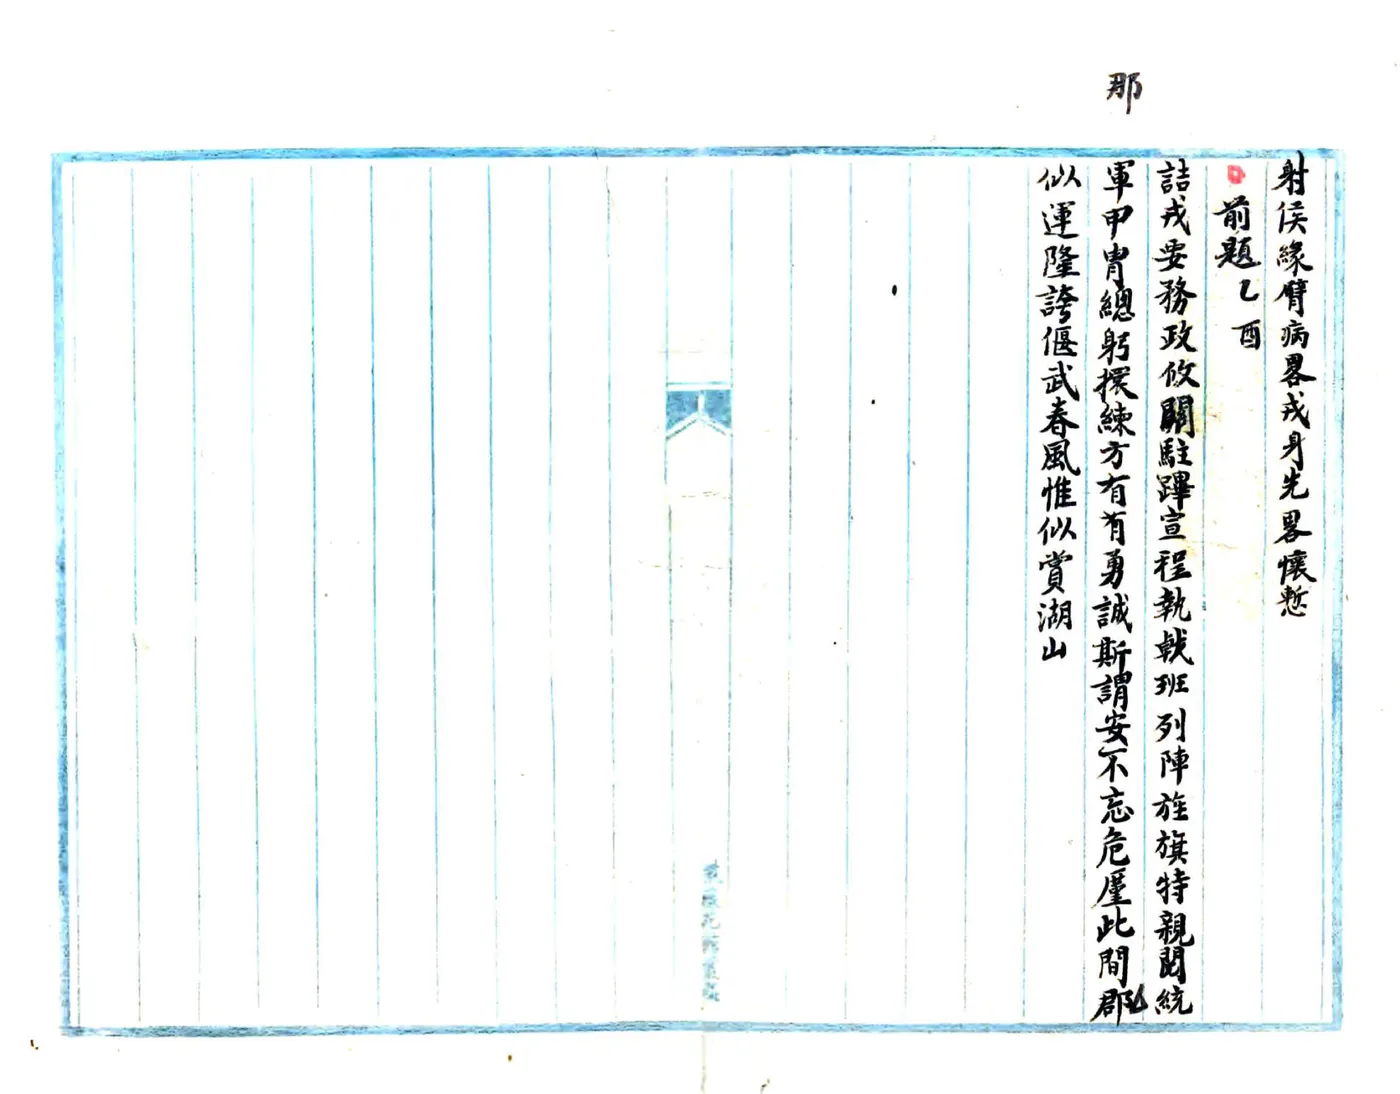 那
射侯緣臂病畧戎身先畧懷慙
前題乙酉
詰戎要務政攸關駐蹕宣程執戟班列陣旌旗特親閱統
軍甲冑總躬擐練方有有勇誠斯謂安不忘危廑此間郡
似運隆誇偃武春風惟似賞湖山